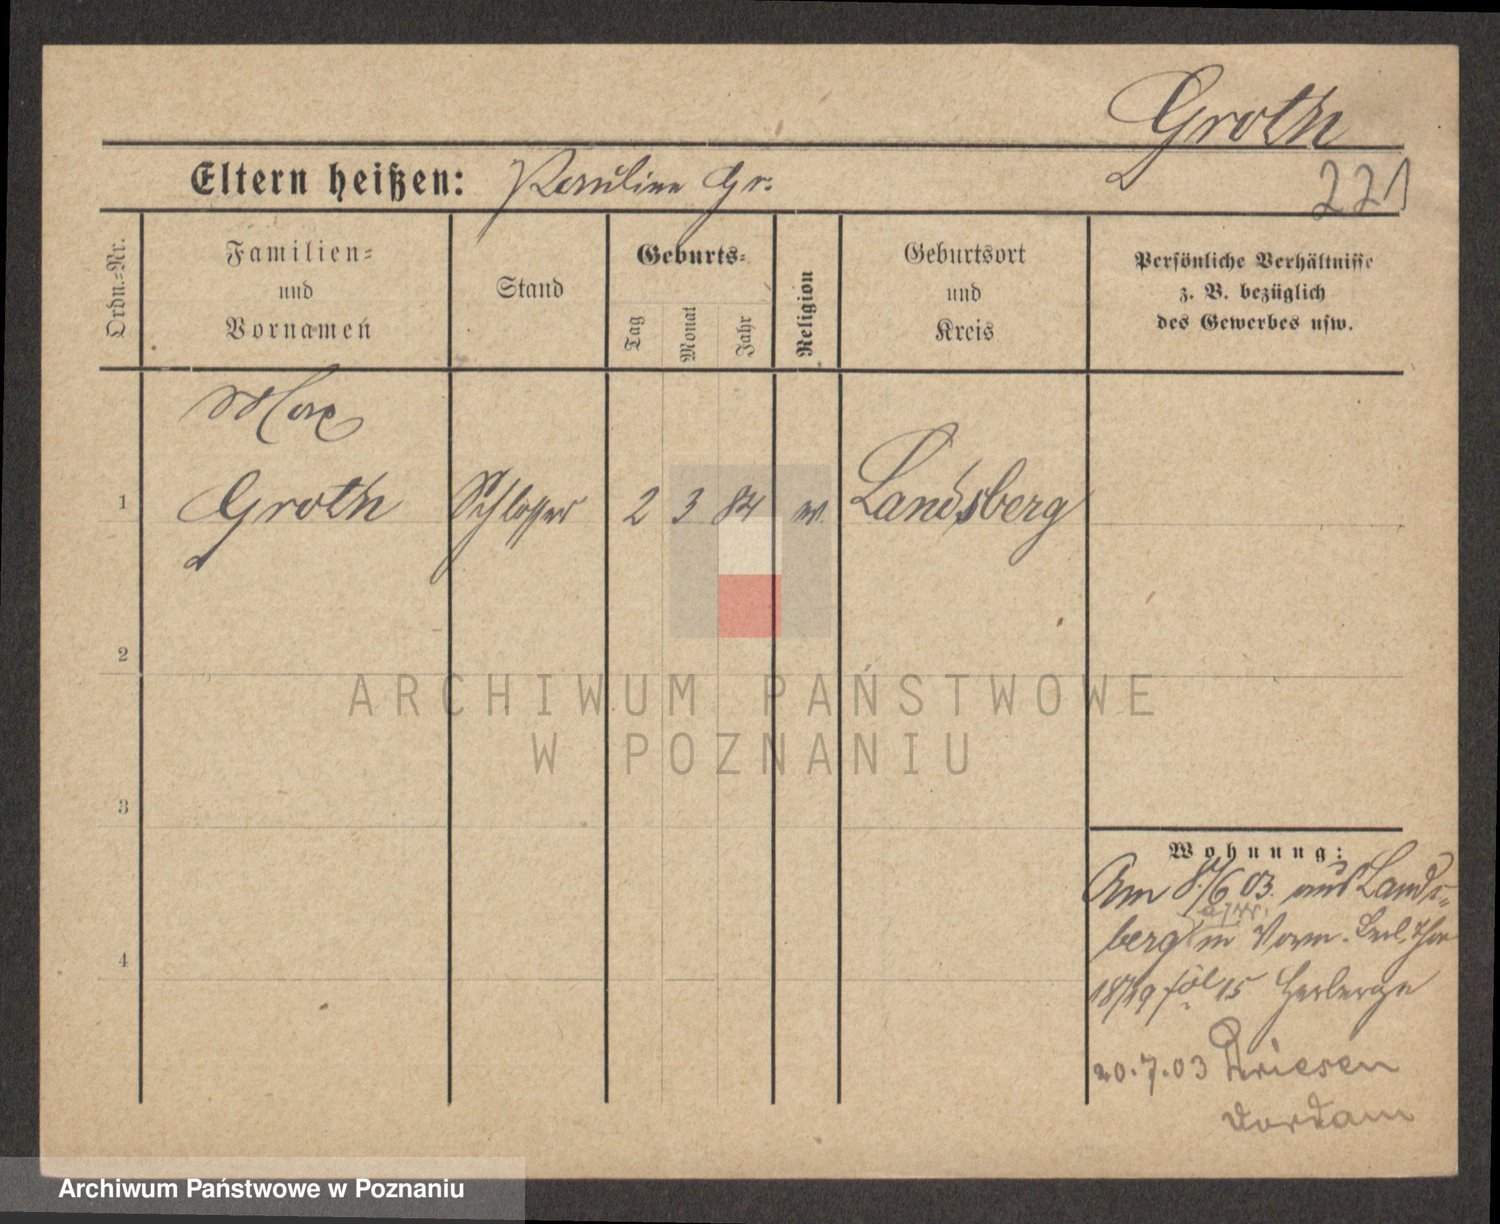 Groth
Eltern heißen: Pauline Gr.
221
Ordn.-Nr.
Familien-
und
Vornamen
Stand
Geburts-
Tag
Monat
Jahr
Religion
Geburtsort
und
Kreis
Persönliche Verhältnisse
z. B. bezüglich
des Gewerbes usw.
Max
1 Groth Schlosser 2 3 84 ev. Landsberg
2
3
4
Wohnung:
Am 8./6 03. aus Lands-
berg in Vorm. Berl. Thor
18/19 bei Herberge
20.7.03 Driesen
Vordam
ARCHIWUM PAŃSTWOWE
W POZNANIU
Archiwum Państwowe w Poznaniu